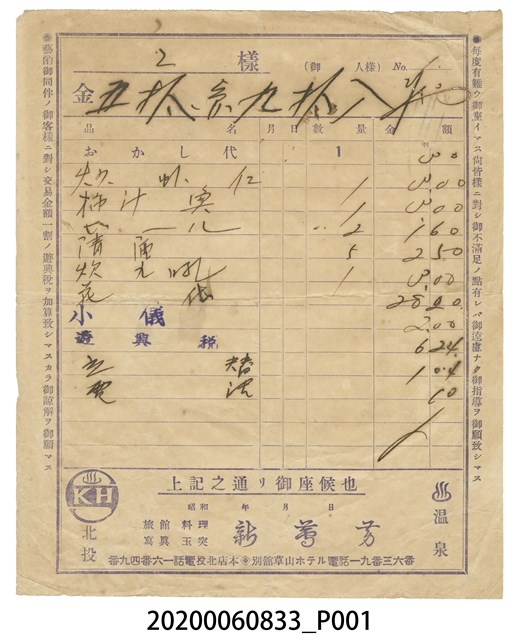 2 様 (御 人様) No.
金 五拾 九拾八
品 名 月 日 數 量 金 額
おかし代 1
炊 蝦 仁 1
汁 魚 1
2 1.60
5 2.50
炊 1
花 代 28.20
小儀 2.00
遊興税 6.24
立替 1.04
電 10
上記之通リ御座候也
昭和 年 月 日
旅館 料理
寫眞 玉突
新薈芳
KH
北投
温泉
番九四番六一話電投北店本 別館草山ホテル電話一九三六番
毎度有難ウ御座イマス向皆様ニ對シ御不満足ノ點有レバ御遠慮ナク御指導ヲ御願致シマス
藝酌御同伴ノ御客様ニ對シ交易金額一割ノ遊興税ヲ加算致シマスカラ御諒解ヲ御願マス
20200060833_P001